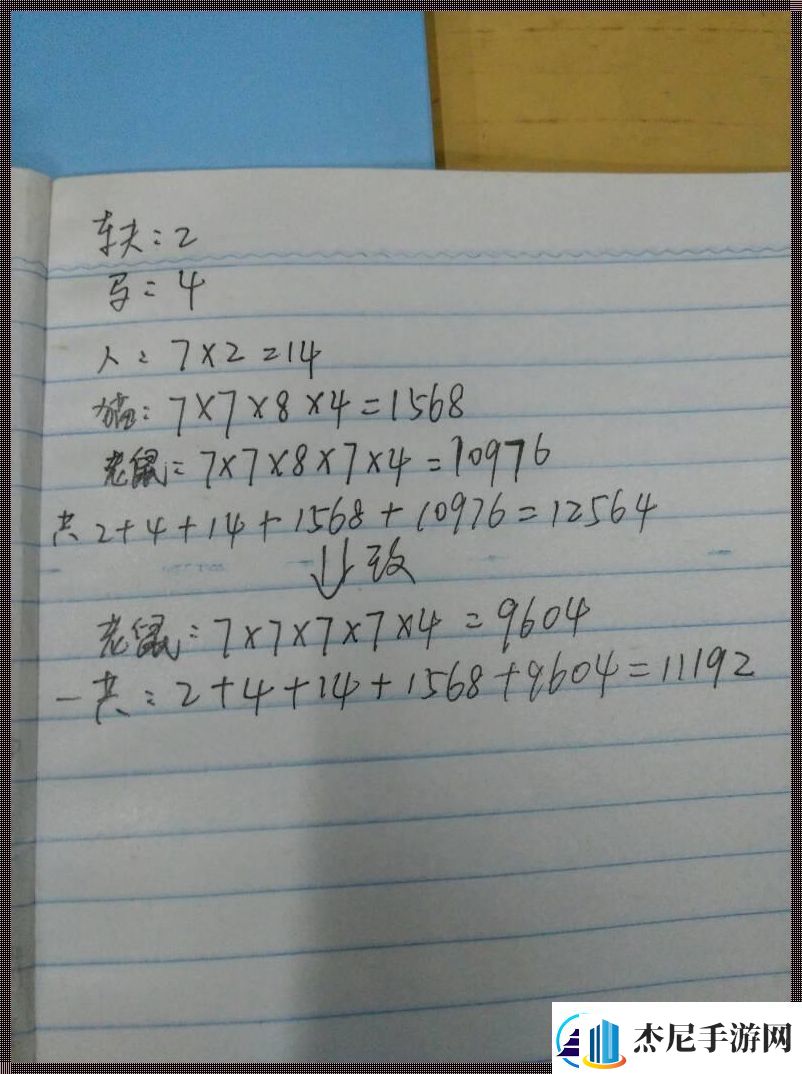 车夫:2
马:4
人:7×2=14
猫:7×7×8×4=1568
老鼠:7×7×8×7×4=10976
共2+4+14+1568+10976=12564
↓改
老鼠:7×7×7×7×4=9604
一共:2+4+14+1568+9604=11192
杰尼手游网